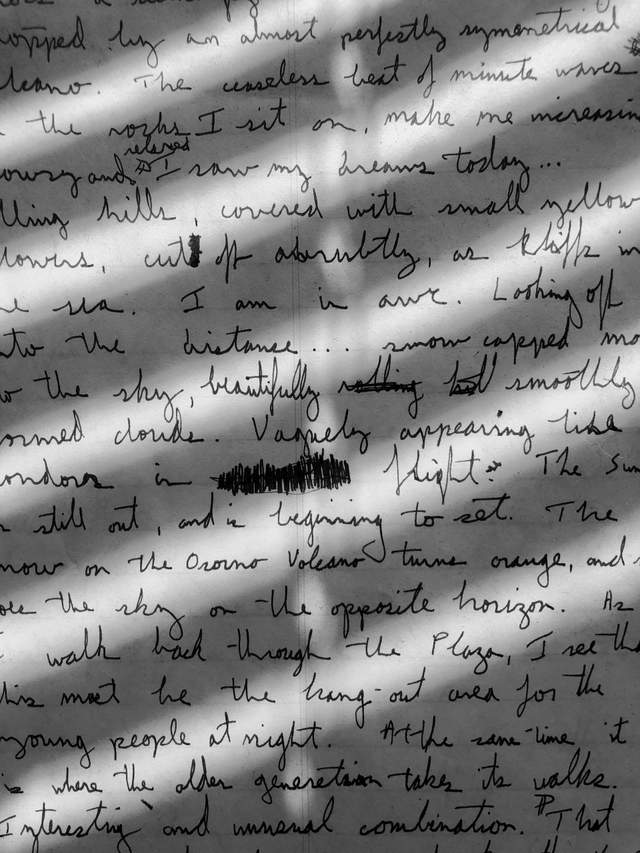 topped by an almost perfectly symmetrical
lcano. The ceaseless beat of minute waves
the rocks I sit on, make me increasin
relaxed
owsy and I saw my dreams today...
lling hills, covered with small yellow
lowers, cut off abrubtly, as kliffs in
he sea. I am in awe. Looking off
nto the distance.... snow capped mo
o the sky, beautifully rolling smoothly
ormed clouds. Vaguely appearing like
ondors in flight. The Sun
is still out, and is beginning to set. The
now on the Osorno Volcano turns orange, and s
oes the sky on the opposite horizon. As
I walk back through the Plaza, I see tha
this most be the hang-out area for the
young people at night. At the same-time it
is where the older generation takes its walks.
Interesting and unusual combination. ¶ That